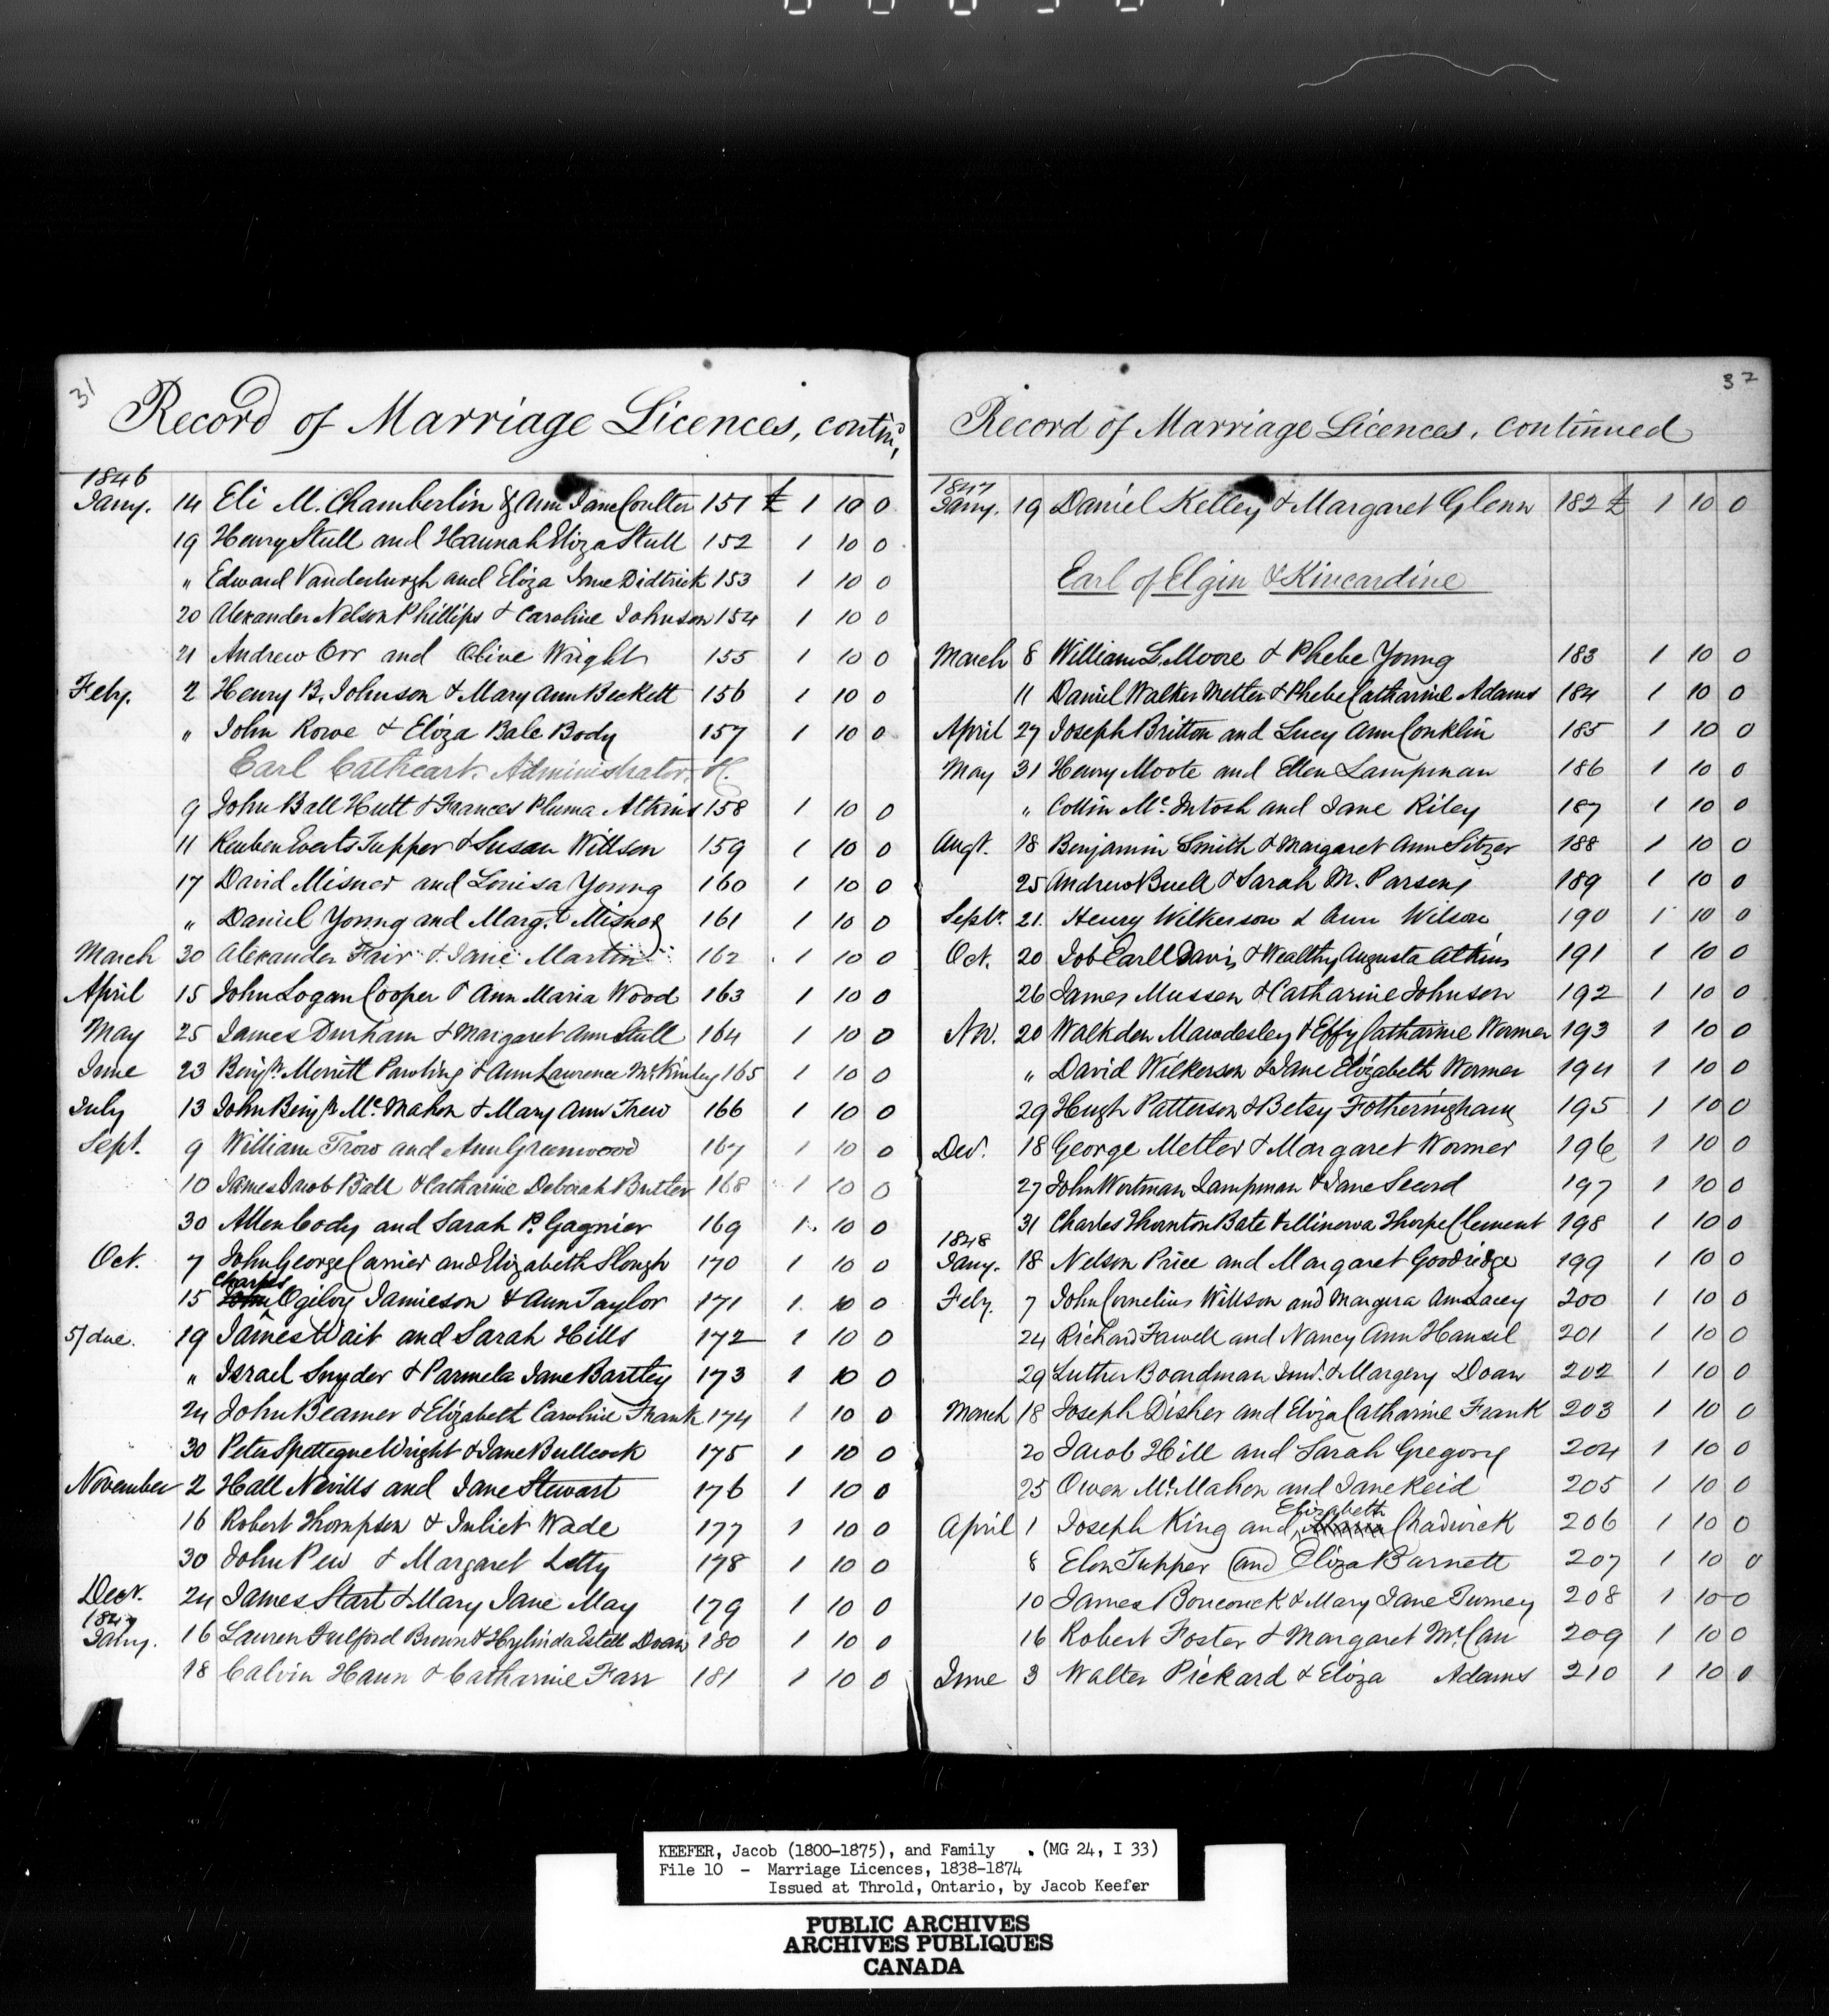 31
Record of Marriage Licences, contin'd,
1846
Jany. 14 Eli M. Chamberlin & Ann Jane Coulter 151 £ 1 10 0
19 Henry Stull and Hannah Eliza Stull 152 1 10 0
" Edward Vanderburgh and Eliza Jane Didtrick 153 1 10 0
20 Alexander Nelson Phillips & Caroline Johnson 154 1 10 0
21 Andrew Orr and Olive Wright 155 1 10 0
Feby. 2 Henry B. Johnson & Mary Ann Beckett 156 1 10 0
" John Rowe & Eliza Bale Body 157 1 10 0
Earl Cathcart, Administrator,
9 John Ball Hutt & Frances Pluma Atkins 158 1 10 0
11 Reuben Everts Tupper & Susan Willson 159 1 10 0
17 David Misner and Louisa Young 160 1 10 0
" Daniel Young and Margt. Misner 161 1 10 0
March 30 Alexander Fair & Jane Martin 162 1 10 0
April 15 John Logan Cooper & Ann Maria Wood 163 1 10 0
May 25 James Durham & Margaret Ann Stull 164 1 10 0
June 23 Benjn. Merritt Pawling & Ann Lawrence McKinley 165 1 10 0
July 13 John Benjn. McMahon & Mary Ann Trew 166 1 10 0
Sept. 9 William Trow and Ann Greenwood 167 1 10 0
10 James Jacob Ball & Catharine Deborah Butler 168 1 10 0
30 Allen Cody and Sarah P. Gagnier 169 1 10 0
Oct. 7 John George Carrier and Elizabeth Slough 170 1 10 0
Charles
15 John Ogilvy Jamieson & Ann Taylor 171 1 10 0
5/ due. 19 James Wait and Sarah Hills 172 1 10 0
" Israel Snyder & Parmela Jane Bartley 173 1 10 0
24 John Beamer & Elizabeth Caroline Frank 174 1 10 0
30 Peter Spettegue Wright & Jane Bullcock 175 1 10 0
November 2 Hall Nevills and Jane Stewart 176 1 10 0
16 Robert Thompson & Juliet Wade 177 1 10 0
30 John Pew & Margaret Letty 178 1 10 0
Decr. 24 James Start & Mary Jane May 179 1 10 0
1847
Jany. 16 Lauren Fulford Brown & Hylinda Estell Doan 180 1 10 0
18 Calvin Haun & Catharine Farr 181 1 10 0
32
Record of Marriage Licences, continued
1847
Jany. 19 Daniel Kelley & Margaret Glenn 182 £ 1 10 0
Earl of Elgin & Kincardine
March 8 William L. Moore & Phebe Young 183 1 10 0
11 Daniel Walker Metler & Phebe Catharine Adams 184 1 10 0
April 27 Joseph Britton and Lucy Ann Conklin 185 1 10 0
May 31 Henry Moote and Ellen Lampman 186 1 10 0
" Collin McIntosh and Jane Riley 187 1 10 0
Augt. 18 Benjamin Smith & Margaret Ann Sitzer 188 1 10 0
25 Andrew Buell & Sarah M. Parsons 189 1 10 0
Septr. 21. Henry Wilkerson & Ann Wilson 190 1 10 0
Oct. 20 Job Earll Davis & Wealthy Augusta Atkins 191 1 10 0
26 James Mussen & Catharine Johnson 192 1 10 0
Nov. 20 Walkden Mawdesley & Effy Catharine Wermer 193 1 10 0
" David Wilkerson & Jane Elizabeth Wermer 194 1 10 0
29 Hugh Patterson & Betsy Fotheringham 195 1 10 0
Decr. 18 George Metler & Margaret Wermer 196 1 10 0
27 John Wertman Lampman & Jane Secord 197 1 10 0
31 Charles Thornton Bate & Minerva Thorpe Clement 198 1 10 0
1848
Jany. 18 Nelson Price and Margaret Goodridge 199 1 10 0
Feby. 7 John Cornelius Willson and Margera Ann Lacey 200 1 10 0
24 Richard Fawell and Nancy Ann Hansel 201 1 10 0
29 Luther Boardman Junr. & Margery Doan 202 1 10 0
March 18 Joseph Disher and Eliza Catharine Frank 203 1 10 0
20 Jacob Hill and Sarah Gregory 204 1 10 0
25 Owen McMahon and Jane Reid 205 1 10 0
Elizabeth
April 1 Joseph King and Chadwick 206 1 10 0
8 Elon Tupper (and) Eliza Barnett 207 1 10 0
10 James Boucouck & Mary Jane Turney 208 1 10 0
16 Robert Foster & Margaret McCan 209 1 10 0
June 3 Walter Pickard & Eliza Adams 210 1 10 0
KEEFER, Jacob (1800-1875), and Family . (MG 24, I 33)
File 10 - Marriage Licences, 1838-1874
Issued at Throld, Ontario, by Jacob Keefer
PUBLIC ARCHIVES
ARCHIVES PUBLIQUES
CANADA